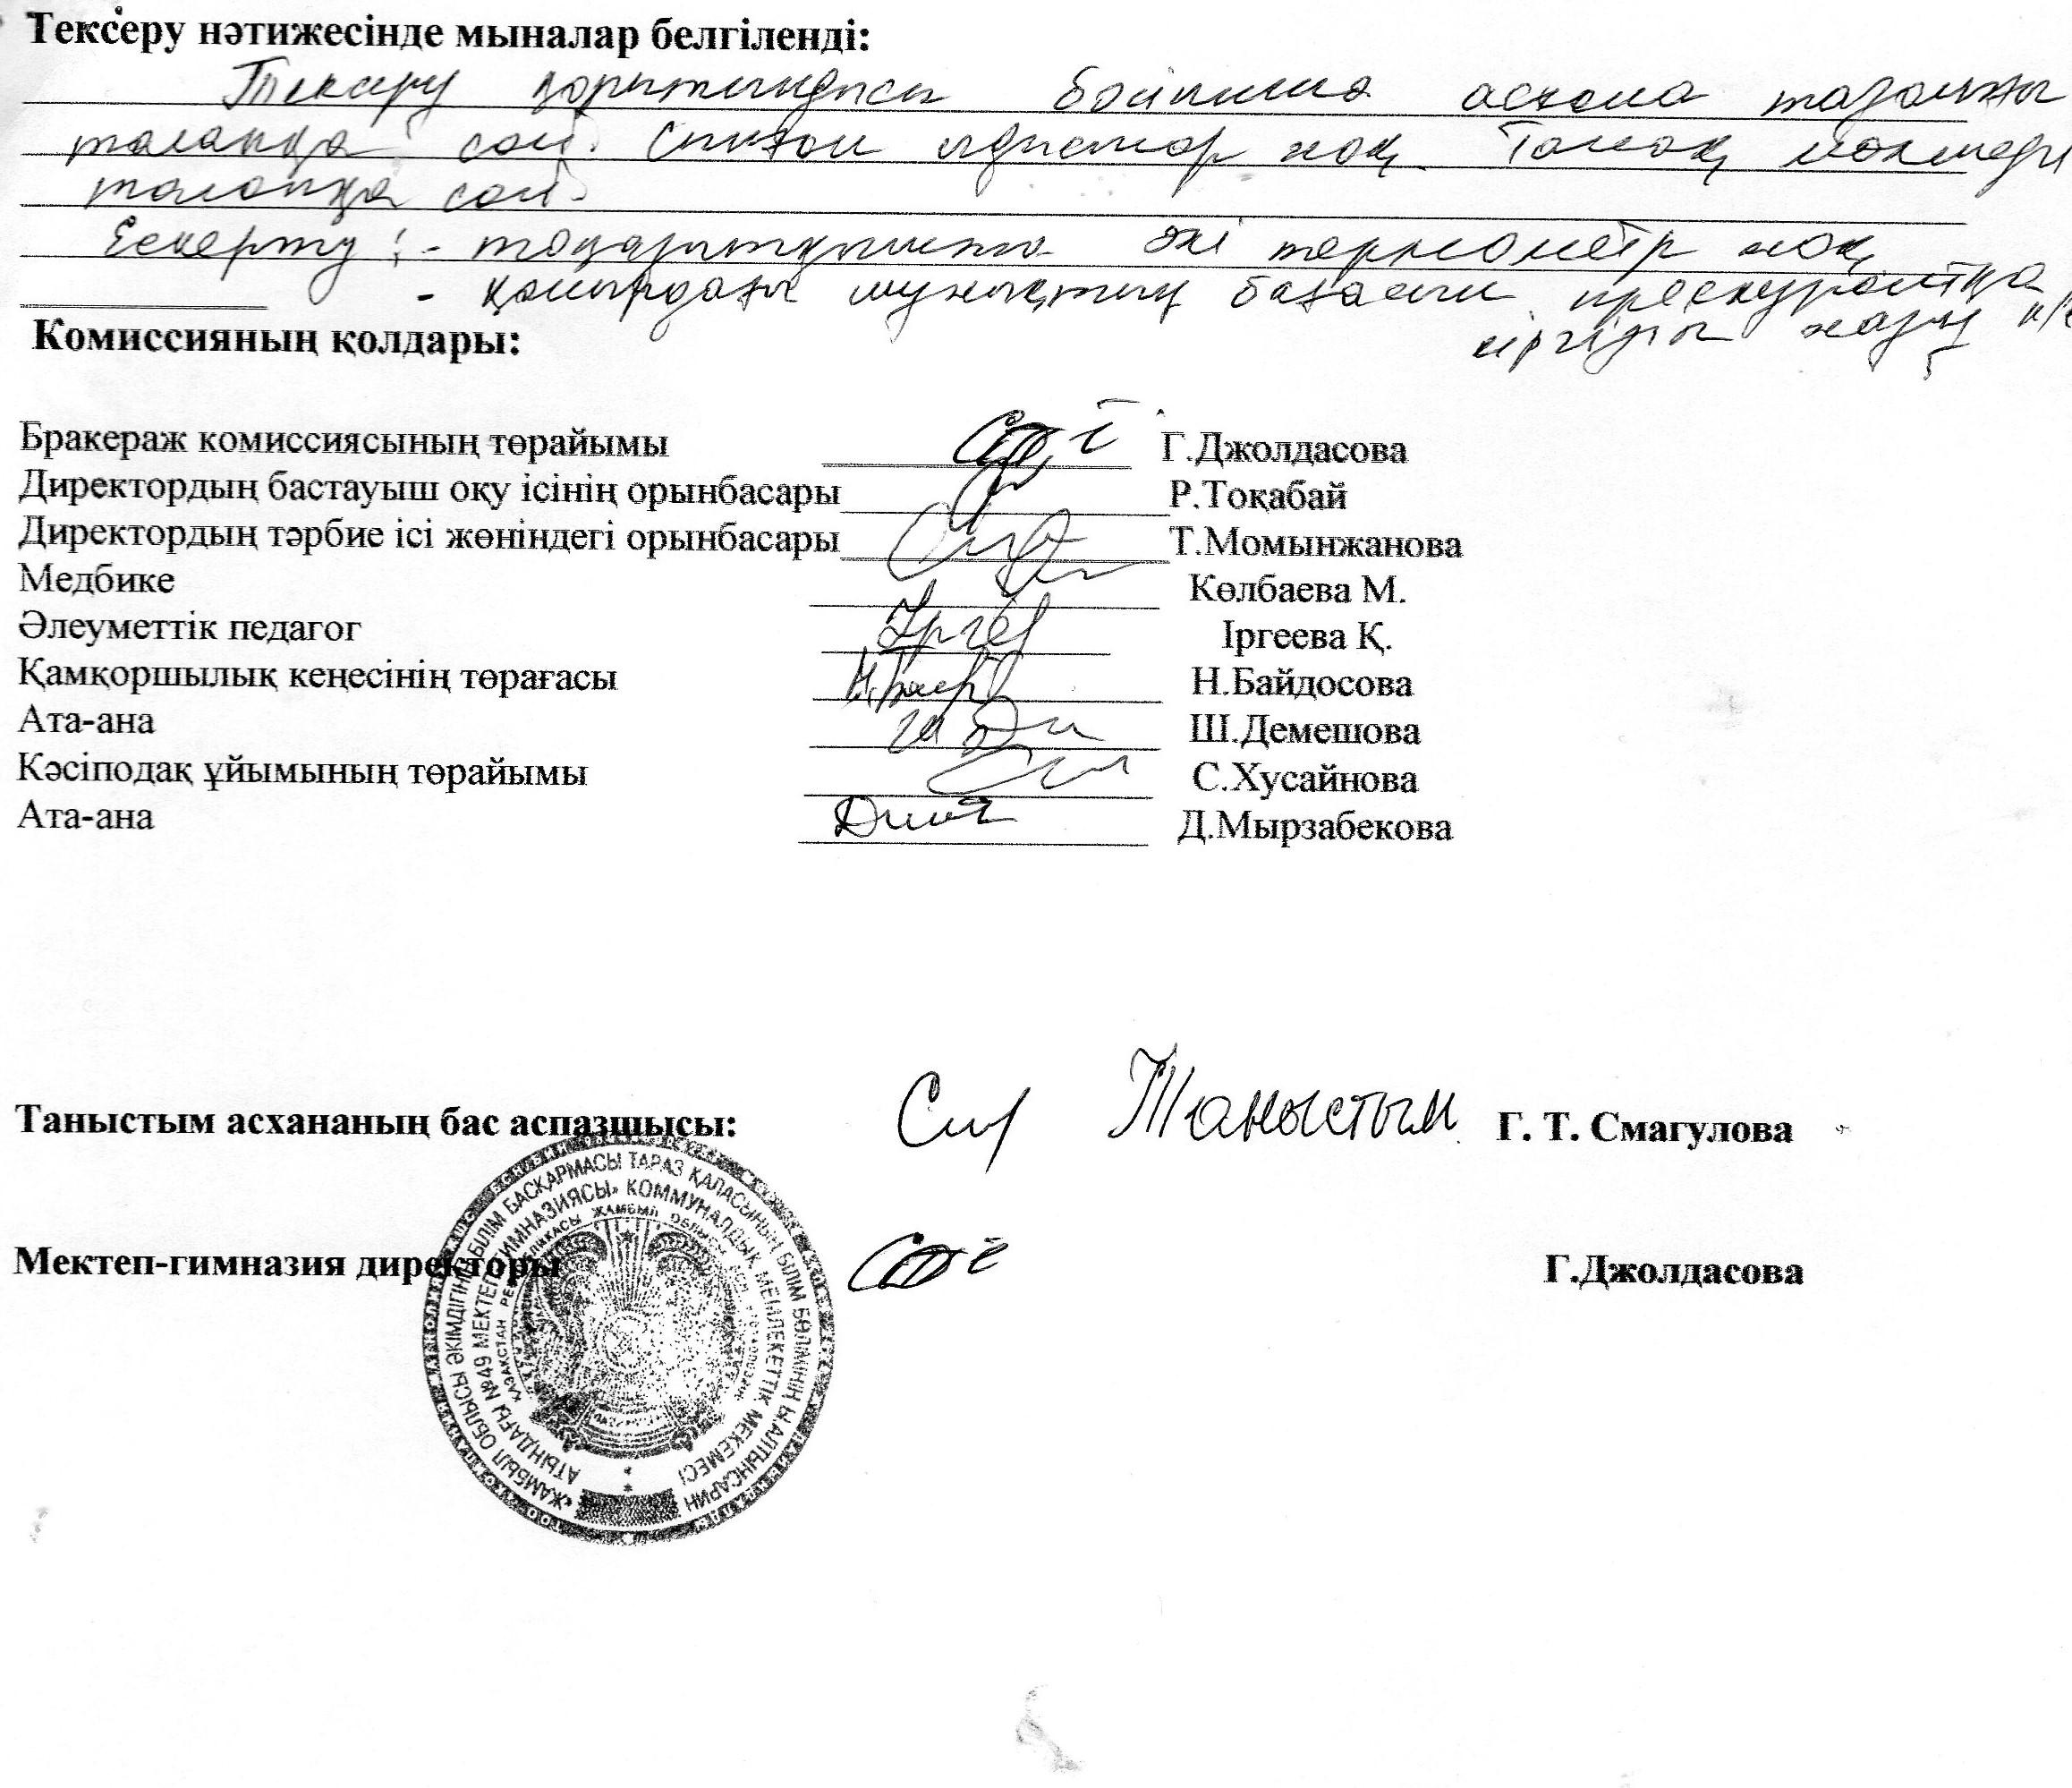 Тексеру нәтижесінде мыналар белгіленді:
Тексеру қорытындысы бойынша асхана тазалығы
талапқа сай. Сынған ыдыстар жоқ. Тамақ мөлшері
талапқа сай.
Ескерту: - тоңазытқышта екі термометр жоқ,
- қамырдағы шұжықтың бағасын прескурантқа
кіргізіп жазу
Комиссияның қолдары:
Бракераж комиссиясының төрайымы Г.Джолдасова
Директордың бастауыш оқу ісінің орынбасары Р.Тоқабай
Директордың тәрбие ісі жөніндегі орынбасары Т.Момынжанова
Медбике Көлбаева М.
Әлеуметтік педагог Іргеева Қ.
Қамқоршылық кеңесінің төрағасы Н.Байдосова
Ата-ана Ш.Демешова
Кәсіподақ ұйымының төрайымы С.Хусайнова
Ата-ана Д.Мырзабекова
Таныстым асхананың бас аспазшысы: Таныстым Г. Т. Смагулова
Мектеп-гимназия директоры Г.Джолдасова
«ЖАМБЫЛ ОБЛЫСЫ ӘКІМДІГІНІҢ БІЛІМ БАСҚАРМАСЫ ТАРАЗ ҚАЛАСЫНЫҢ БІЛІМ БӨЛІМІНІҢ Ы.АЛТЫНСАРИН
АТЫНДАҒЫ №49 МЕКТЕП-ГИМНАЗИЯСЫ» КОММУНАЛДЫҚ МЕМЛЕКЕТТІК МЕКЕМЕСІ
ҚАЗАҚСТАН РЕСПУБЛИКАСЫ ЖАМБЫЛ ОБЛЫСЫ